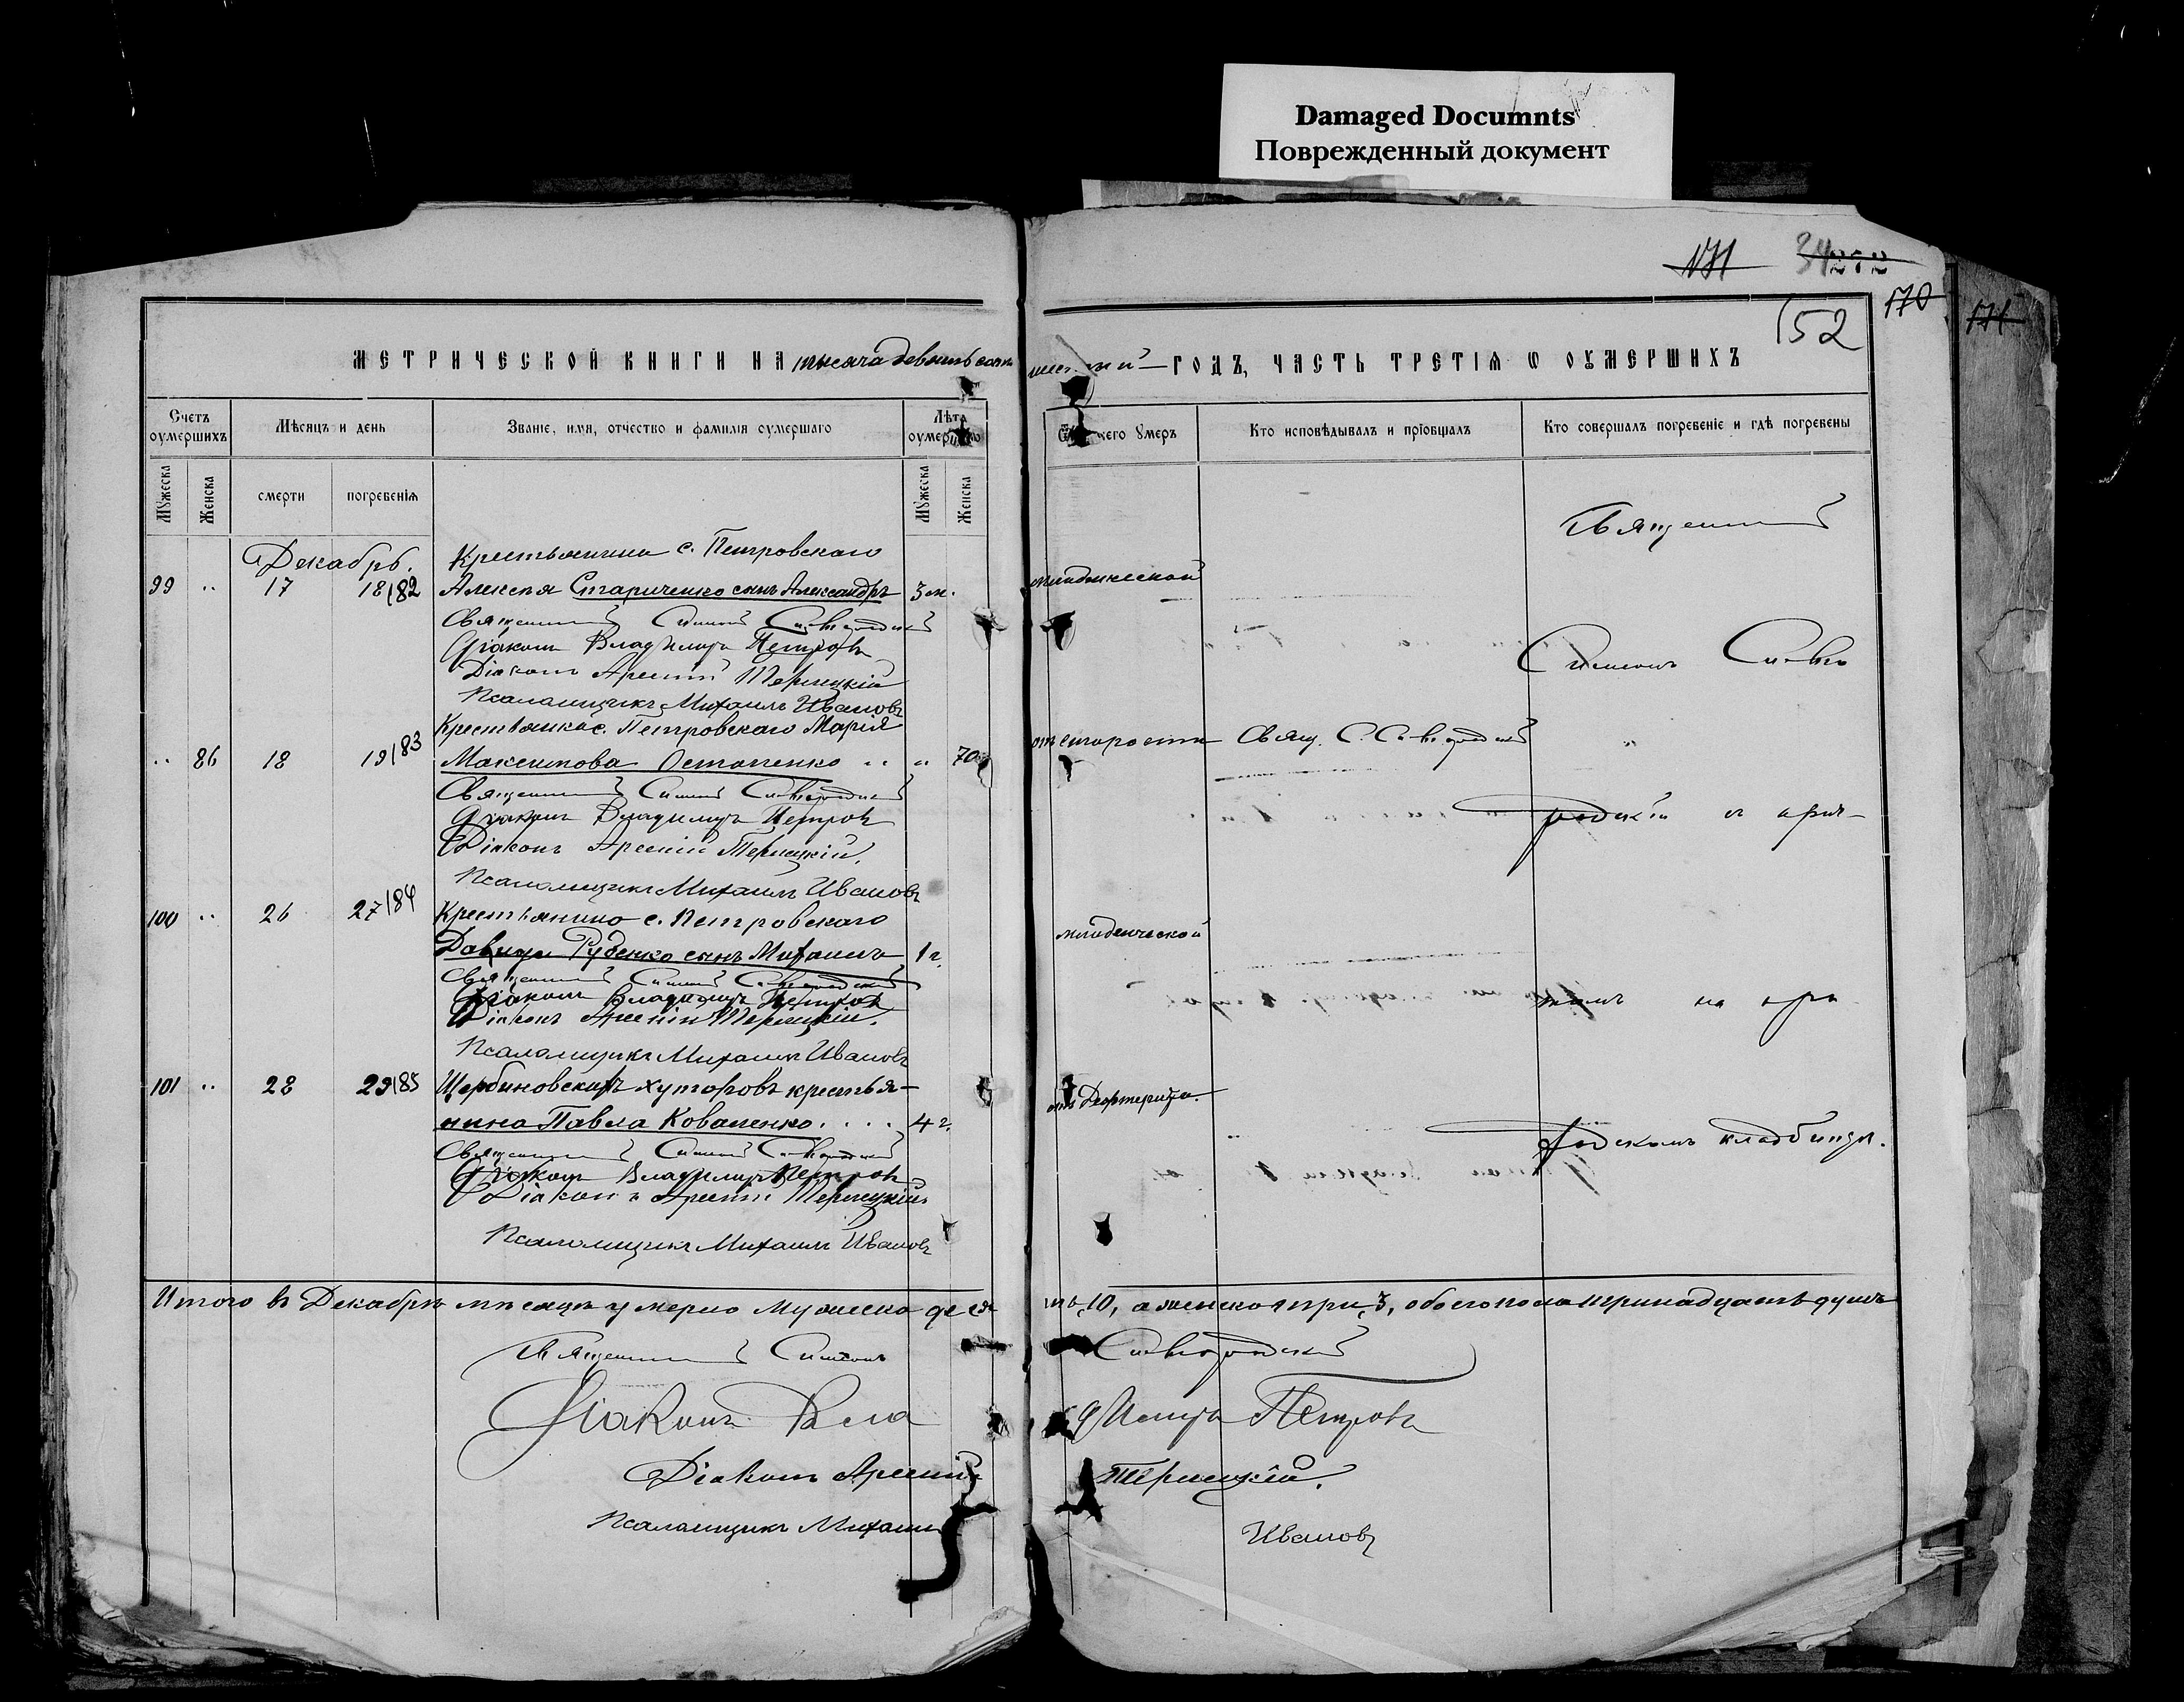 Damaged Documnts
Поврежденный документ
171 34 272
170 171
152
МЕТРИЧЕСКОЙ КНИГИ НА тысяча девятьсотъ шестой — ГОДЪ, ЧАСТЬ ТРЕТІЯ Ѡ ОУМЕРШИХЪ
Счетъ оумершихъ
Мѣсяцъ и день
Званіе, имя, отчество и фамилія оумершаго
Лѣта оумершаго
чего умеръ
Кто исповѣдывалъ и пріобщалъ
Кто совершалъ погребеніе и гдѣ погребены
Мужеска
Женска
смерти
погребенія
Мужеска
Женска
Священникъ
Декабрь.
Крестьянина с. Петровскаго
99 " 17 18 182 Алексѣя Стариченко сынъ Александръ 3 м. младенческой
Священникъ Симеонъ
Діаконъ Владиміръ Петровъ
Діаконъ Арсеній Терлецкій
Симеонъ
Псаломщикъ Михаилъ Ивановъ
Крестьянка с. Петровскаго Марія
" 86 18 19 183 Максимова Остапенко " " 70 отъ старости Свящ. С. "
Священникъ Симеонъ
Діаконъ Владиміръ Петровъ
родскій съ прич-
Діаконъ Арсеній Терлецкій.
Псаломщикъ Михаилъ Ивановъ
100 " 26 27 184 Крестьянина с. Петровскаго
Давида Руденко сынъ Михаилъ 1 г. младенческой
Священникъ Симеонъ
Діаконъ Владиміръ Петровъ
Діаконъ Арсеній Терлецкій.
томъ на при
Псаломщикъ Михаилъ Ивановъ
101 " 28 29 185 Щербиновскихъ хуторовъ крестья-
нина Павла Коваленко.... 4 г. отъ дифтерита.
Священникъ Симеонъ
ходскомъ кладбищѣ.
Діаконъ Владиміръ Петровъ
Діаконъ Арсеній Терлецкій
Псаломщикъ Михаилъ Ивановъ
Итого въ Декабрѣ мѣсяцѣ умерло мужеска десять, 10, а женска три, 3, обоего пола тринадцать душъ
Священникъ Симеонъ
Діаконъ Владиміръ Петровъ
Діаконъ Арсеній Терлецкій.
Псаломщикъ Михаилъ Ивановъ